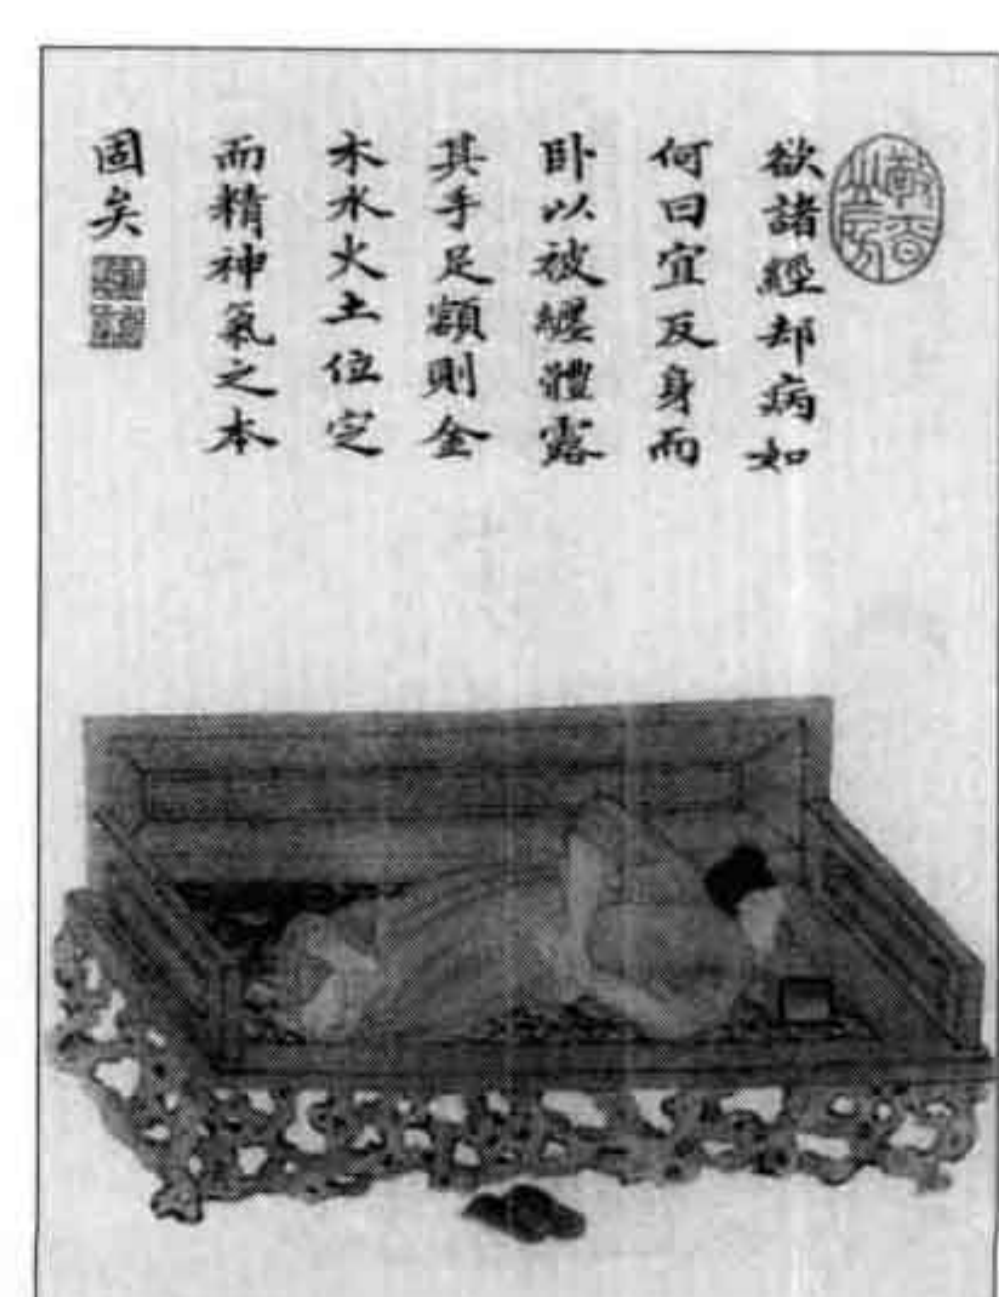 欲諸經却病如
何曰宜反身而
卧以被纏體露
其手足額則金
木水火土位定
而精神氣之本
固矣